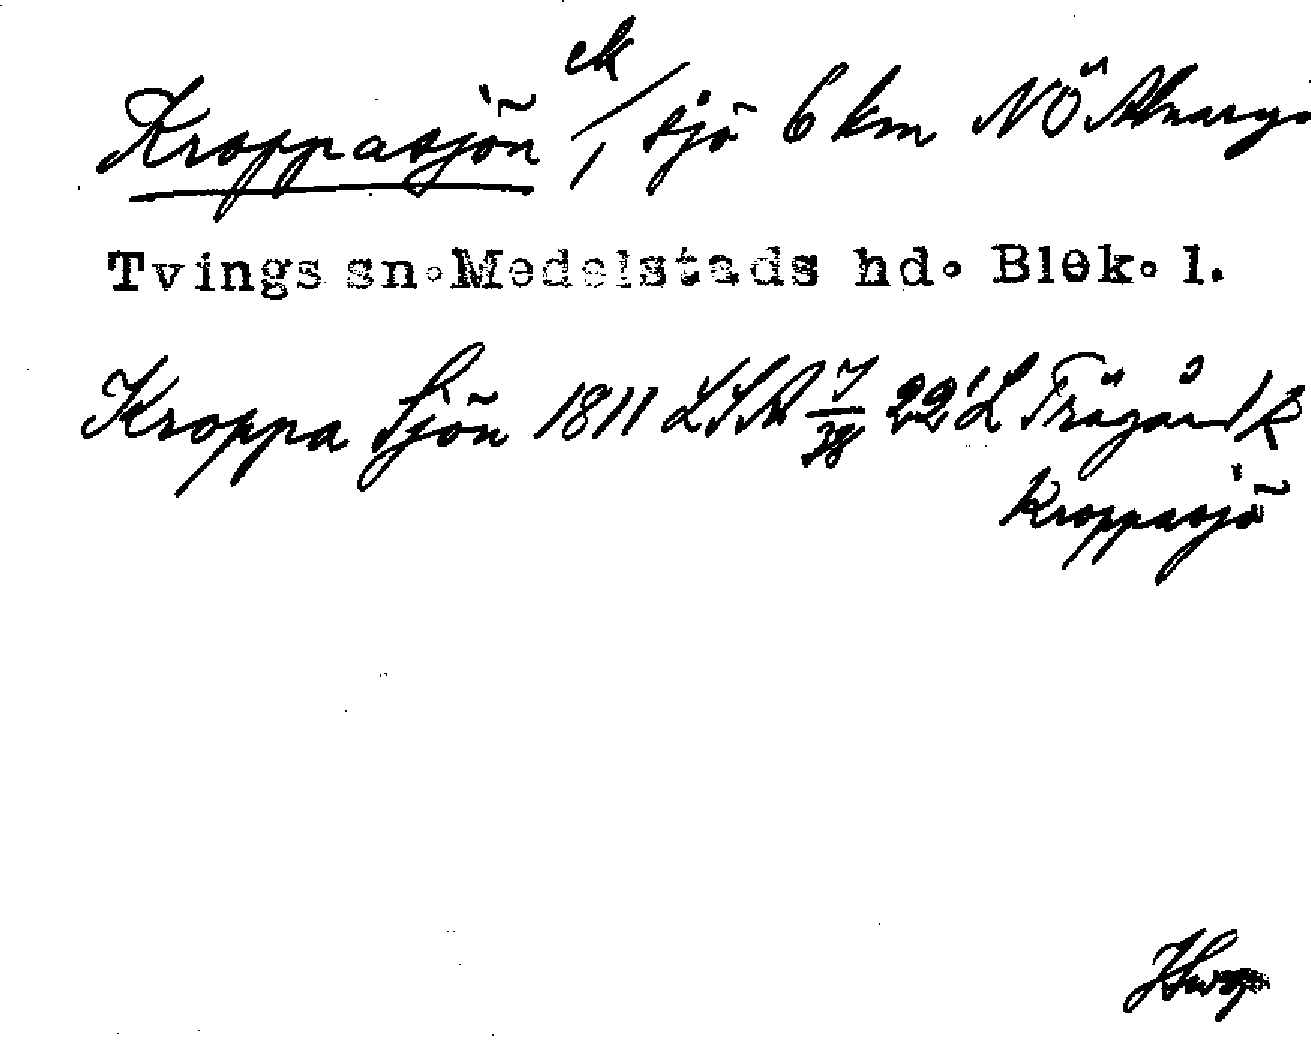 ek
Kroppasjön / sjö 6 km NÖ Alnaryd
Tvings sn. Medelstads hd. Blek. l.
Kroppa Sjön 1811 LSA 7/38 22 L Trägård k
Kroppasjö